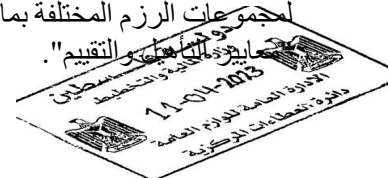 لمجموعات الرزم المختلفة بما
معايير التأهيل والتقييم".
دولة فلسطين
وزارة المالية والتخطيط
11-04-2023
الإدارة العامة للوازم العامة
دائرة العطاءات المركزية